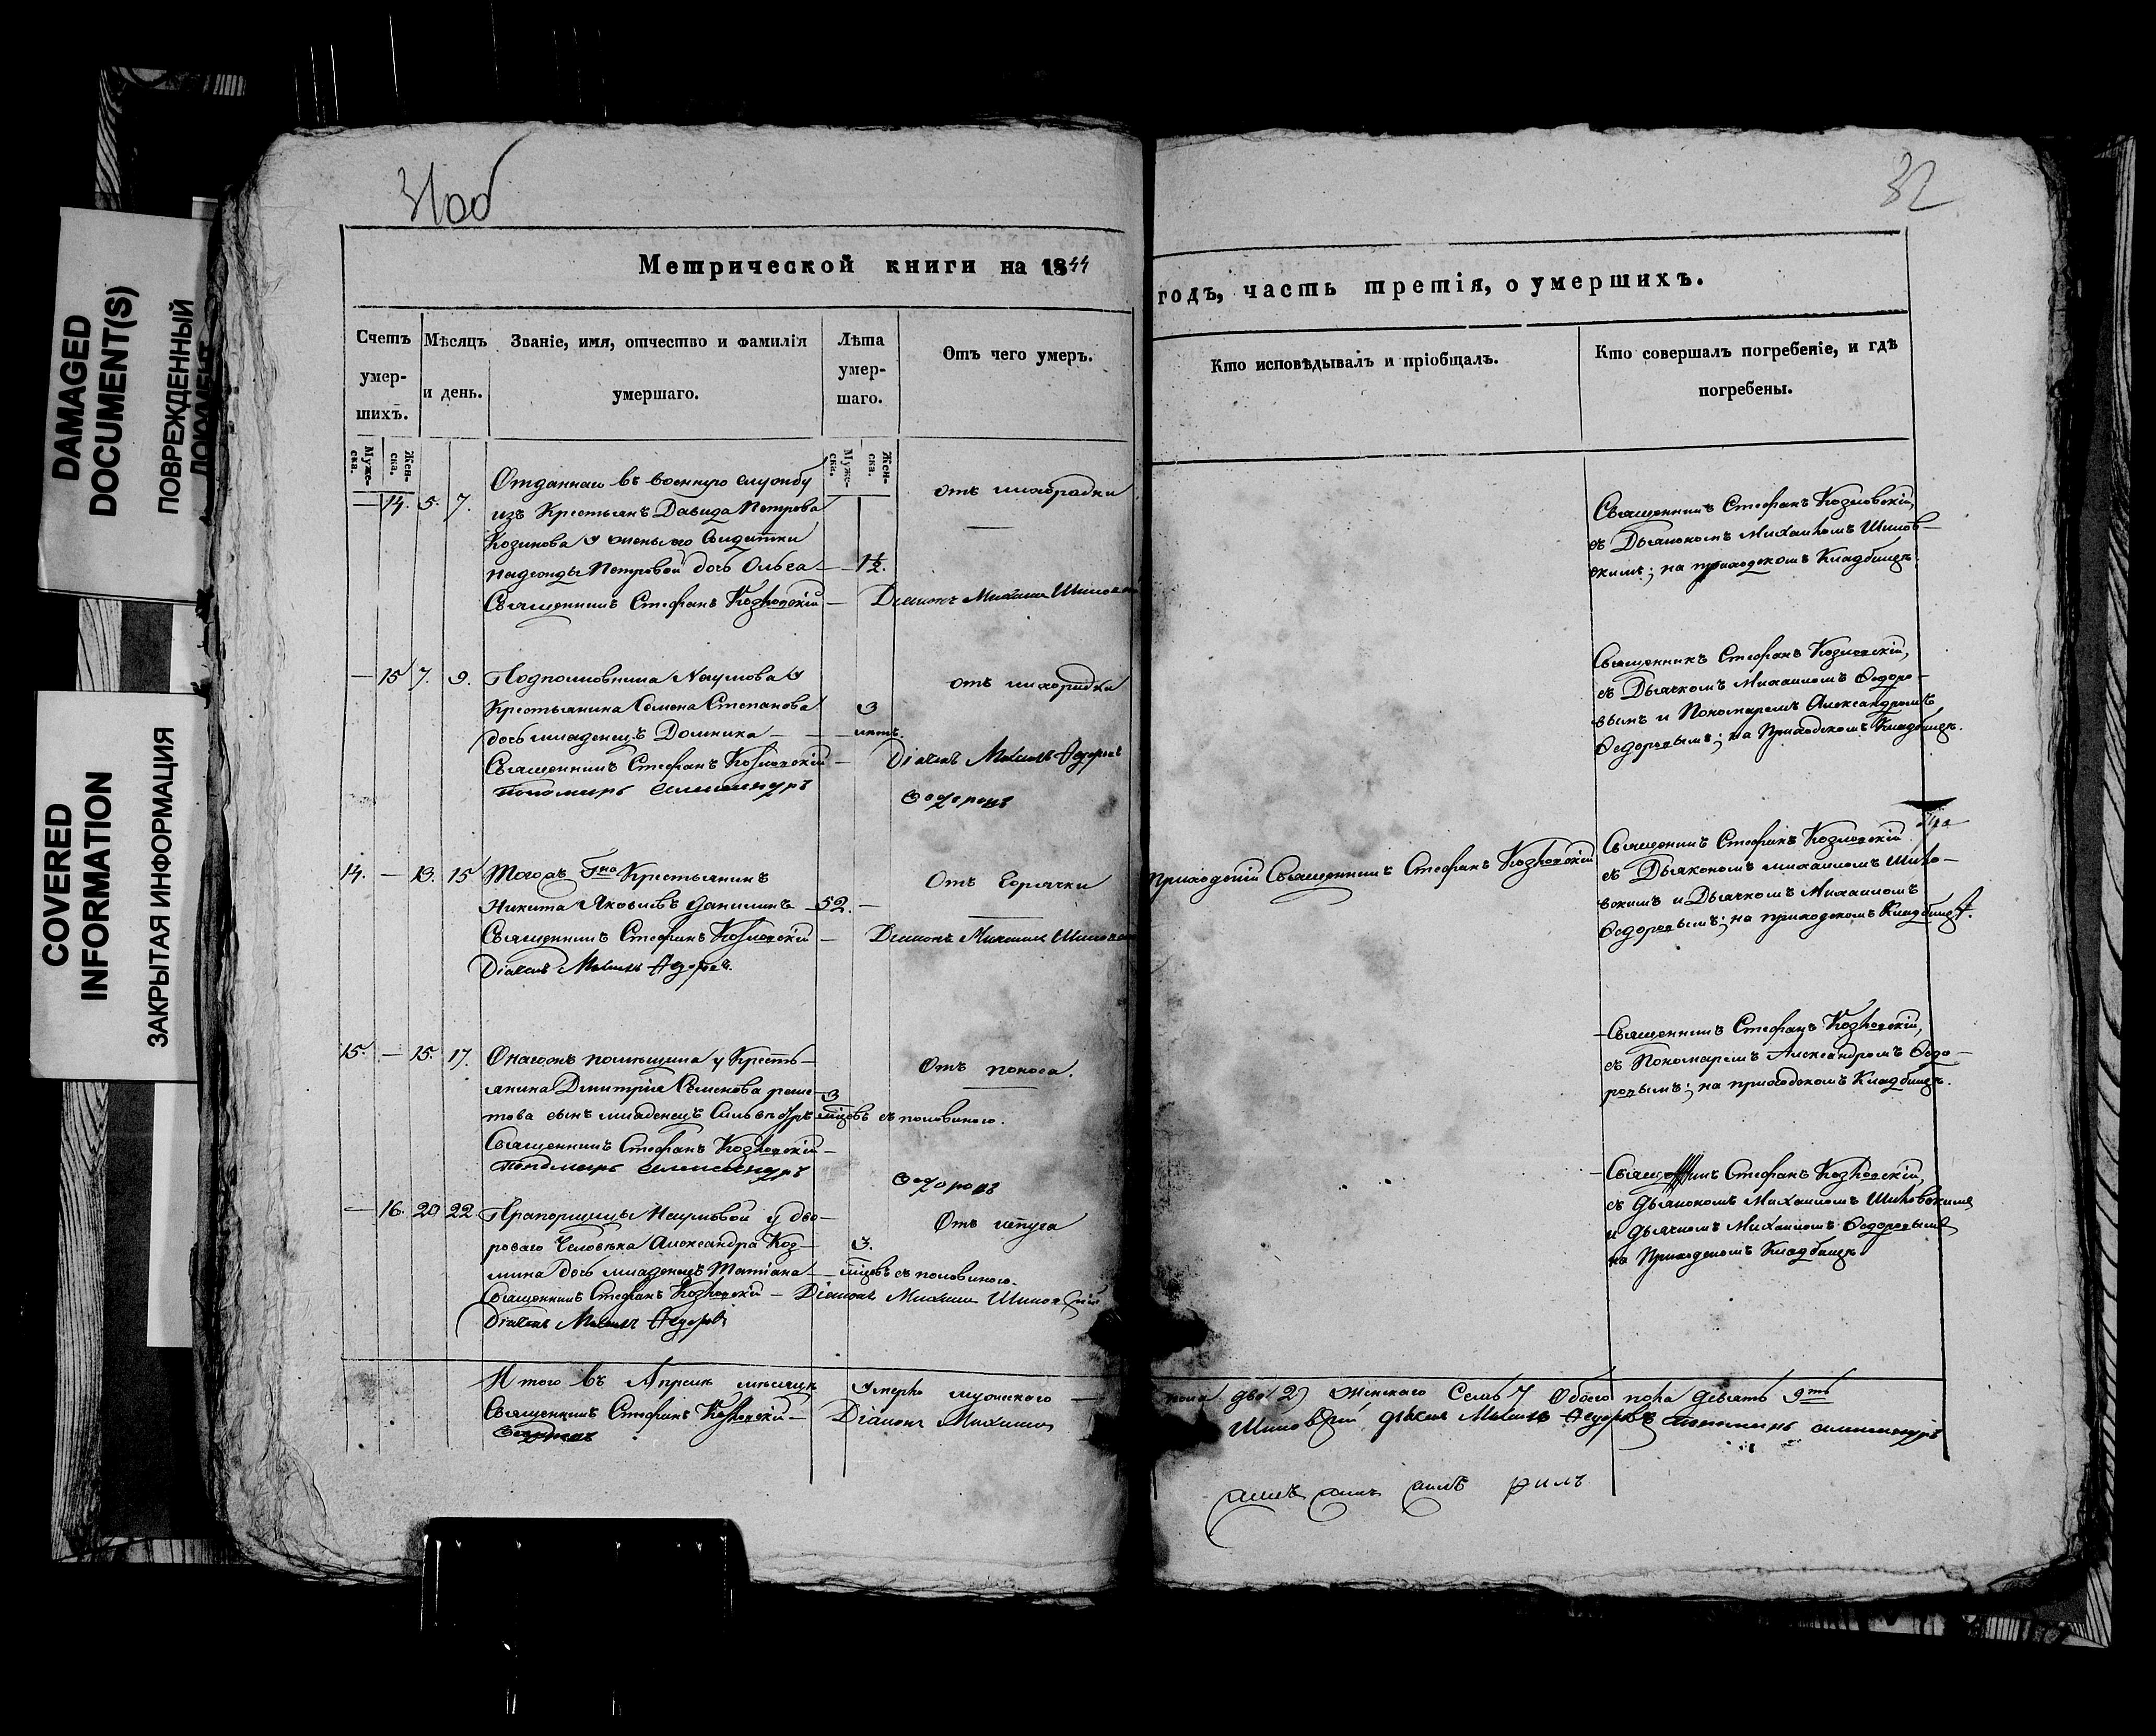 DAMAGED
DOCUMENT(S)
ПОВРЕЖДЕННЫЙ
ДОКУМЕНТ
COVERED
INFORMATION
ЗАКРЫТАЯ ИНФОРМАЦИЯ
31об
32
Метрической книги на 1844
годъ, часть третія, о умершихъ.
Счетъ умершихъ.
Мѣсяцъ и день.
Званіе, имя, отчество и фамилія умершаго.
Лѣта умершаго.
Отъ чего умеръ.
Кто исповѣдывалъ и пріобщалъ.
Кто совершалъ погребеніе, и гдѣ погребены.
Мужеска.
Женска.
Мужеска.
Женска.
— 14. 5. 7.
Отданнаго въ военную службу
изъ Крестьянъ Давида Петрова
Козинова
Надежды Петровой дочь Ольга — 1½.
Священникъ Стефанъ Козловскій —
отъ лихорадки
Діаконъ Михаилъ
Священникъ Стефанъ Козловскій,
съ Дьякономъ Михаиломъ
скимъ; на приходскомъ Кладбищѣ.
— 15 7. 9.
Подполковника Наумова У
Крестьянина Семена Степанова
дочь младенецъ Домника — 3
лѣтъ.
Священникъ Стефанъ Козловскій —
Пономарь Александръ
отъ лихорадки
Діачекъ Михаилъ Федоровъ
Федоровъ
Священникъ Стефанъ Козловскій,
съ Дьячкомъ Михаиломъ Федоро-
вымъ и Пономаремъ Александромъ
Федоровымъ; на Приходскомъ Кладбищѣ.
14. — 13. 15
Тогожъ Гна Крестьянинъ
Никита Яковлевъ Данилинъ — 52. —
Священникъ Стефанъ Козловскій —
Діачекъ Михаилъ Федоровъ.
Отъ Горячки
Діаконъ Михаилъ
Приходскій Священникъ Стефанъ Козловскій
Священникъ Стефанъ Козловскій
съ Дьякономъ Михаиломъ
вскимъ и Дьячкомъ Михаиломъ
Федоровымъ; на приходскомъ Кладбищѣ.
15. — 15. 17.
Онагожъ помѣщика у Кресть-
янина Дмитрія Семенова реше-
това сынъ младенецъ 3
мцовъ съ половиною.
Священникъ Стефанъ Козловскій —
Пономарь Александръ
Отъ поноса.
Федоровъ
Священникъ Стефанъ Козловскій,
съ Пономаремъ Александромъ Федо-
ровымъ; на приходскомъ Кладбищѣ.
— 16. 20 22.
Прапорщицы Наумовой у дво-
роваго Человѣка Александра Коз-
мина дочь младенецъ Татіана — 3.
мцовъ съ половиною.
Священникъ Стефанъ Козловскій — Діаконъ Михаилъ
Діачекъ Михаилъ Федоровъ
Отъ испуга
Священникъ Стефанъ Козловскій,
съ дьякономъ Михаиломъ
и дьячкомъ Михаиломъ Федоровымъ
на Приходскомъ Кладбищѣ
Итого въ Апрелѣ мѣсяцѣ умерло мужескаго пола два 2) женскаго Семь 7 Обоего пола девять 9ть
Священникъ Стефанъ Козловскій — Діаконъ Михаилъ дьячекъ Михаилъ Федоровъ пономарь Александръ
Федоровъ